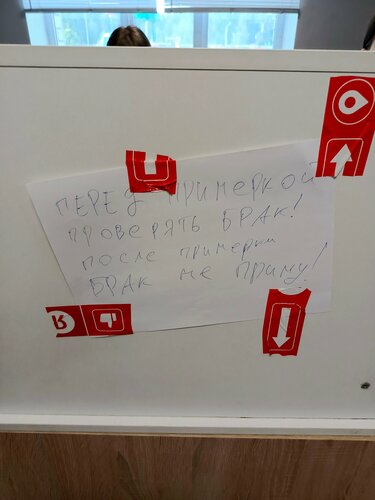 ПЕРЕД ПРИМЕРКОЙ
ПРОВЕРЯТЬ БРАК!
ПОСЛЕ ПРИМЕРКИ
БРАК НЕ ПРИМУ!
R